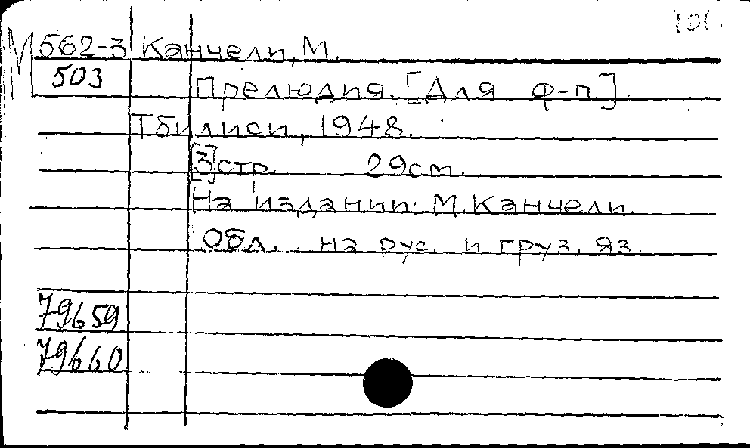 М 562-3 Канчели, М.
503
Прелюдия. [Для ф-п]
Тбилиси, 1948.
[3] стр. 29 см.
На издании: М. Канчели.
Обл. на рус. и груз. яз.
79659
79660